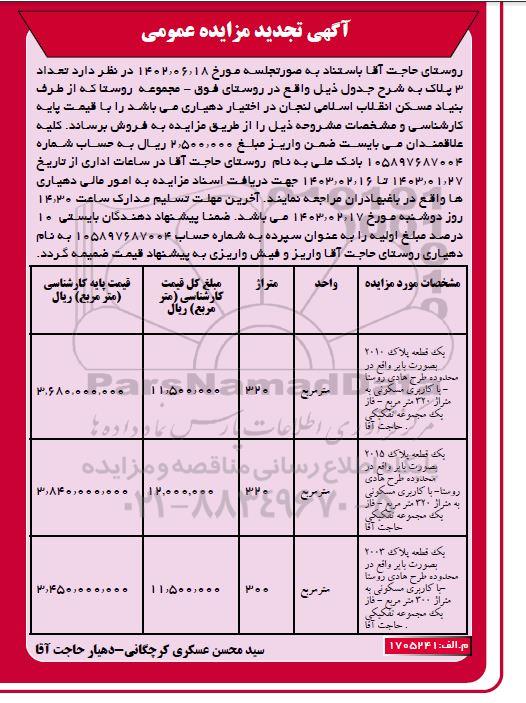 آگهی تجدید مزایده عمومی
روستای حاجت آقا باستناد به صورتجلسه مورخ ۱۴۰۲،۰۶،۱۸ در نظر دارد تعداد
۳ پلاک به شرح جدول ذیل واقع در روستای فوق - مجموعه روستا که از طرف
بنیاد مسکن انقلاب اسلامی لنجان در اختیار دهیاری می باشد را با قیمت پایه
کارشناسی و مشخصات مشروحه ذیل را از طریق مزایده به فروش برساند. کلیه
علاقمندان می بایست ضمن واریز مبلغ ۲،۵۰۰،۰۰۰ ریال به حساب شماره
۱۰۵۸۹۷۶۸۷۰۰۴ بانک ملی به نام روستای حاجت آقا در ساعات اداری از تاریخ
۱۴۰۳،۰۱،۲۷ تا ۱۴۰۳،۰۲،۱۶ جهت دریافت اسناد مزایده به امور مالی دهیاری
ها واقع در باغبهادران مراجعه نمایند. آخرین مهلت تسلیم مدارک ساعت ۱۴،۳۰
روز دوشنبه مورخ ۱۴۰۳،۰۲،۱۷ می باشد. ضمنا پیشنهاد دهندگان بایستی ۱۰
درصد مبلغ اولیه را به عنوان سپرده به شماره حساب ۱۰۵۸۹۷۶۸۷۰۰۴ به نام
دهیاری روستای حاجت آقا واریز و فیش واریزی به پیشنهاد قیمت ضمیمه گردد.
مشخصات مورد مزایده واحد متراژ مبلغ کل قیمت کارشناسی (متر مربع) ریال قیمت پایه کارشناسی (متر مربع) ریال
یک قطعه پلاک ۲۰۱۰
بصورت بایر واقع در
محدوده طرح هادی روستا
- با کاربری مسکونی به
متراژ ۳۲۰ متر مربع - فاز
یک مجموعه تفکیکی
حاجت آقا .
مترمربع ۳۲۰ ۱۱،۵۰۰،۰۰۰ ۳،۶۸۰،۰۰۰،۰۰۰
یک قطعه پلاک ۲۰۱۵
بصورت بایر واقع در
محدوده طرح هادی
روستا- با کاربری مسکونی
به متراژ ۳۲۰ متر مربع - فاز
یک مجموعه تفکیکی
حاجت آقا
مترمربع ۳۲۰ ۱۲،۰۰۰،۰۰۰ ۳،۸۴۰،۰۰۰،۰۰۰
یک قطعه پلاک ۲۰۰۳
بصورت بایر واقع در
محدوده طرح هادی روستا
-با کاربری مسکونی به
متراژ ۳۰۰ متر مربع - فاز
یک مجموعه تفکیکی
حاجت آقا .
مترمربع ۳۰۰ ۱۱،۵۰۰،۰۰۰ ۳،۴۵۰،۰۰۰،۰۰۰
م.الف:۱۷۰۵۲۴۱
سید محسن عسکری کرچگانی-دهیار حاجت آقا
ParsNamadData
مرکز فرآوری اطلاعات پارس نماد داده ها
پایگاه اطلاع رسانی مناقصه و مزایده
۰۲۱-۸۸۳۴۹۶۷۰-۵